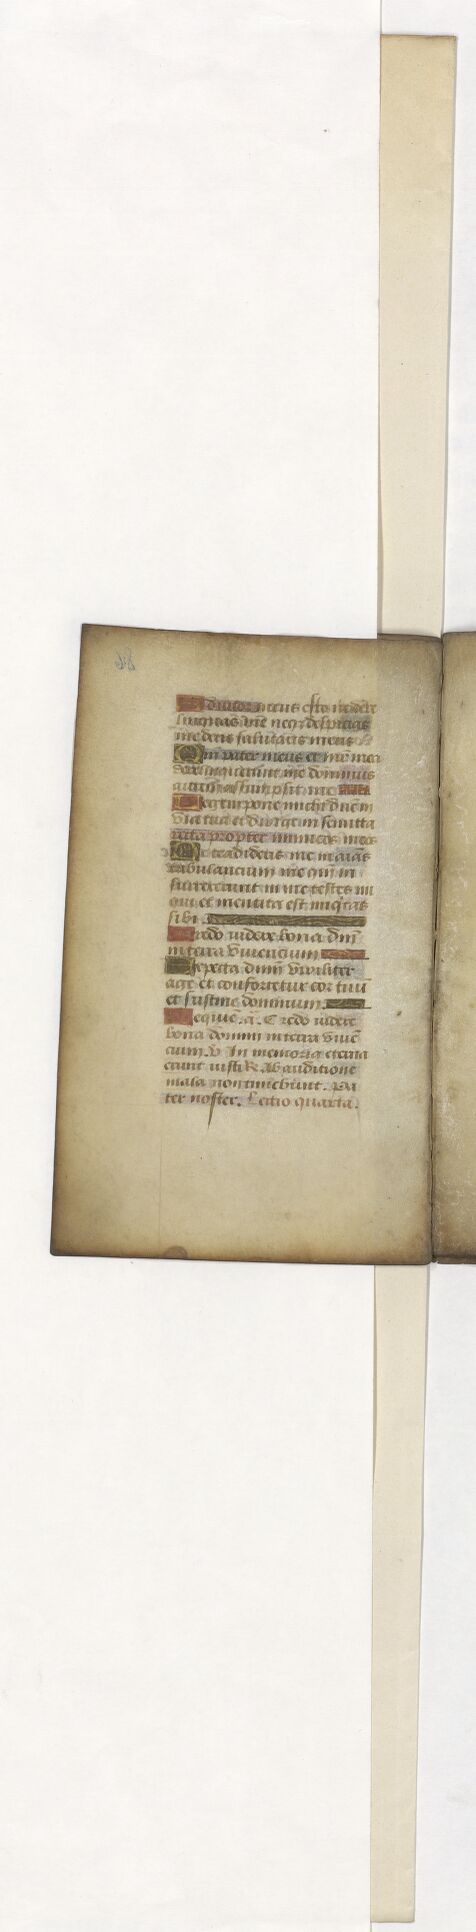 Adiutor meus esto ne dere
linquas me neq; despicias
me deus salutaris meus
Qm pater meus et mr mea
dereliquerunt me dominus
autem assumpsit me
Legem pone michi dne in
via tua et dirige in semita
recta propter inimicos meos
Ne tradideris me in aias
tribulancium me qm in
surrexerunt in me testes ini
qui et mentita est iniqtas
sibi
Credo videre bona dni
in terra viuencium
Expecta dnm viriliter
age et confortetur cor tuu
et sustine dominum
Requie. a. Credo videre
bona domini in terra viue
cium. v In memoria eterna
erunt iusti R Ab auditione
mala non timebunt. Pa
ter noster. Lectio quarta.